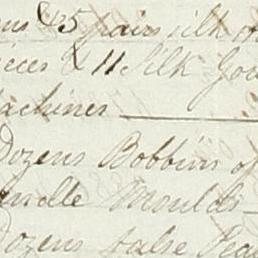 & 5 pairs silk
& 11 Silk Gow
achines
Dozens Bobbins of
Moulds
Dozens false Pea